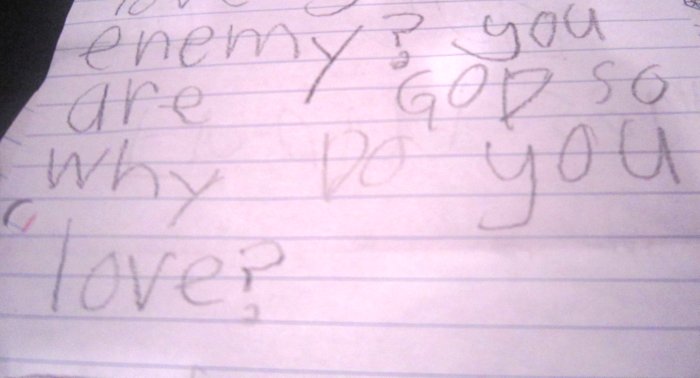 enemy? you
are GOD so
why Do you
love?